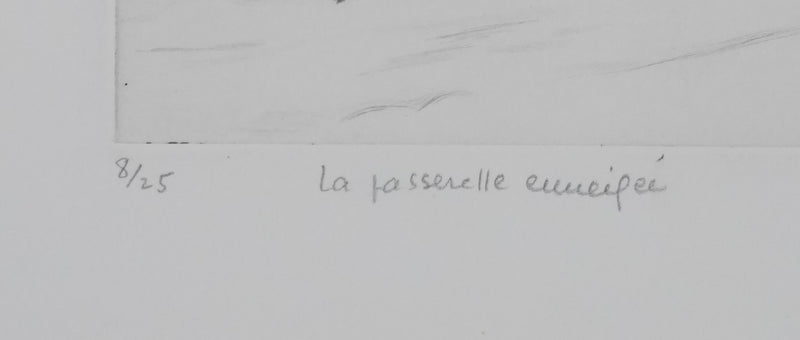 8/25 La passerelle enneigée